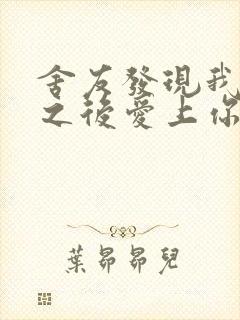 舍友發現我
之後愛上你
葉昴昴兒